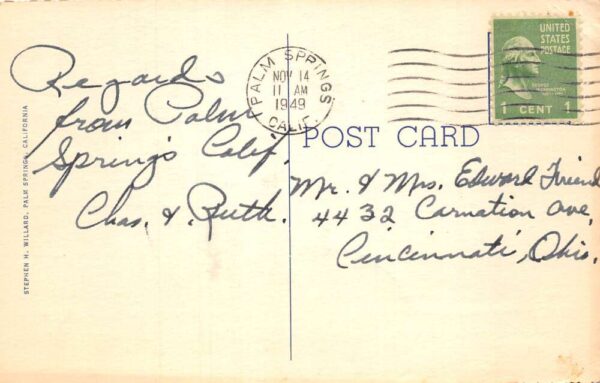 Regards
from Palm
Springs Calif.
Chas. & Ruth.
STEPHEN H. WILLARD, PALM SPRINGS, CALIFORNIA
PALM SPRINGS
NOV 14
11 AM
1949
CALIF.
UNITED
STATES
POSTAGE
GEORGE
WASHINGTON
1 CENT 1
POST CARD
Mr. & Mrs. Edward Friend
4432 Carnation Ave,
Cincinnati, Ohio.